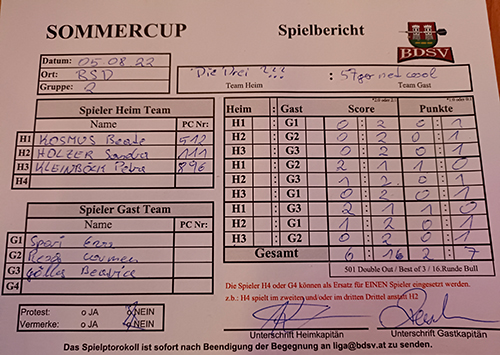 SOMMERCUP
Spielbericht
BDSV
Datum: 05.08.22
Ort: BSD
Gruppe: 2
"Die Drei !!! : 57ger net cool
Team Heim Team Gast
Spieler Heim Team
Name PC Nr:
H1 KOSMUS Beate 512
H2 HOLZER Sandra 111
H3 KLEINBÖCK Petra 896
H4
Spieler Gast Team
Name PC Nr:
G1
G2 Carmen
G3 Beatrice
G4
Heim Gast Score Punkte
H1 : G1 0 : 2 0 : 1
H2 : G2 0 : 2 0 : 1
H3 : G3 0 : 2 0 : 1
H1 : G2 2 : 1 1 : 0
H2 : G3 1 : 2 0 : 1
H3 : G1 0 : 2 0 : 1
H1 : G3 2 : 1 1 : 0
H2 : G1 1 : 2 0 : 1
H3 : G2 0 : 2 0 : 1
Gesamt 6 : 16 2 : 7
501 Double Out / Best of 3 / 16.Runde Bull
Die Spieler H4 oder G4 können als Ersatz für EINEN Spieler eingesetzt werden.
z.b.: H4 spielt im zweiten und/oder im dritten Drittel anstatt H2
Protest: o JA o NEIN
Vermerke: o JA o NEIN
Unterschrift Heimkapitän
Unterschrift Gastkapitän
Das Spielptotokoll ist sofort nach Beendigung der Begegnung an liga@bdsv.at zu senden.